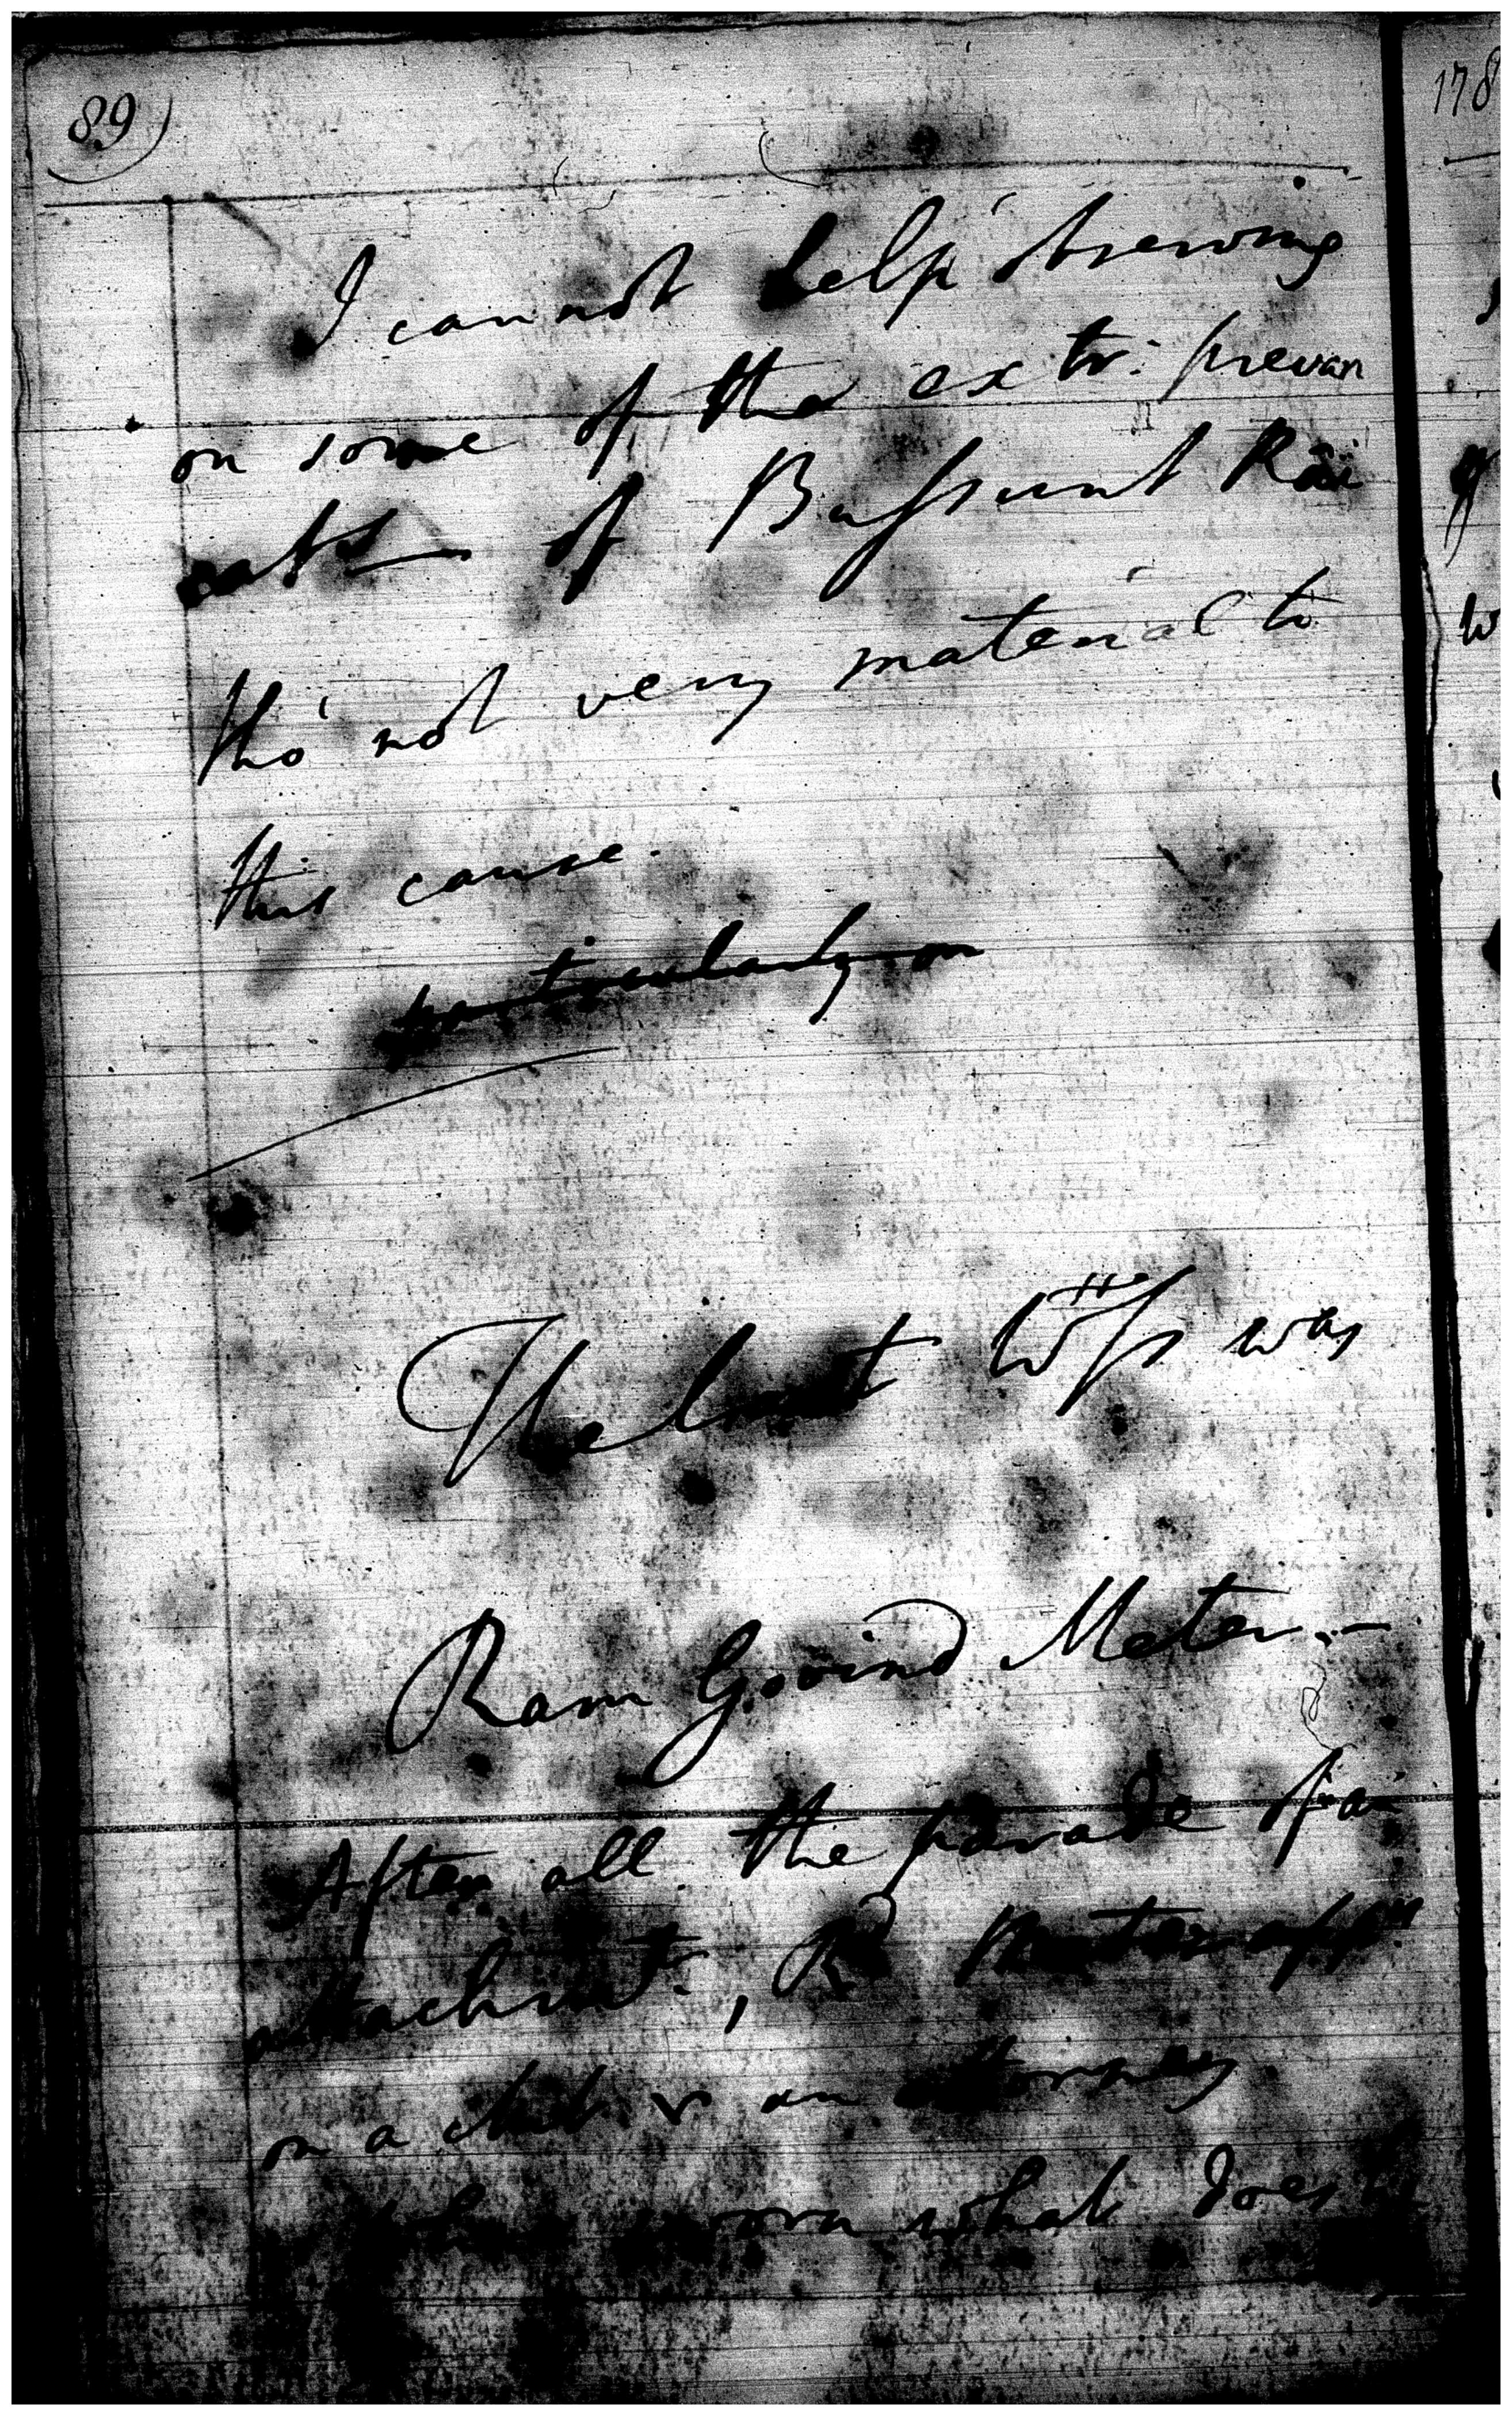 89)
178
I cannot help observing
on some of the extr: prevari
cats of Bussunt Rai
tho' not very material to
this cause.
particularly on
The last Wss was
Ram Govind Meter. —
After all the parade of an
attachmt:, R Meter
on a or an attorney
sworn what does he